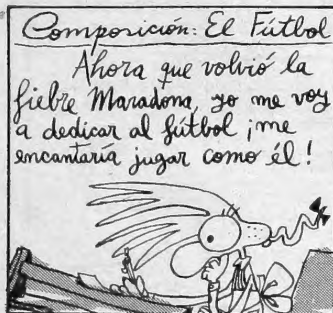 Composición: El Fútbol
Ahora que volvió la
fiebre Maradona, yo me voy
a dedicar al fútbol ¡me
encantaría jugar como él!